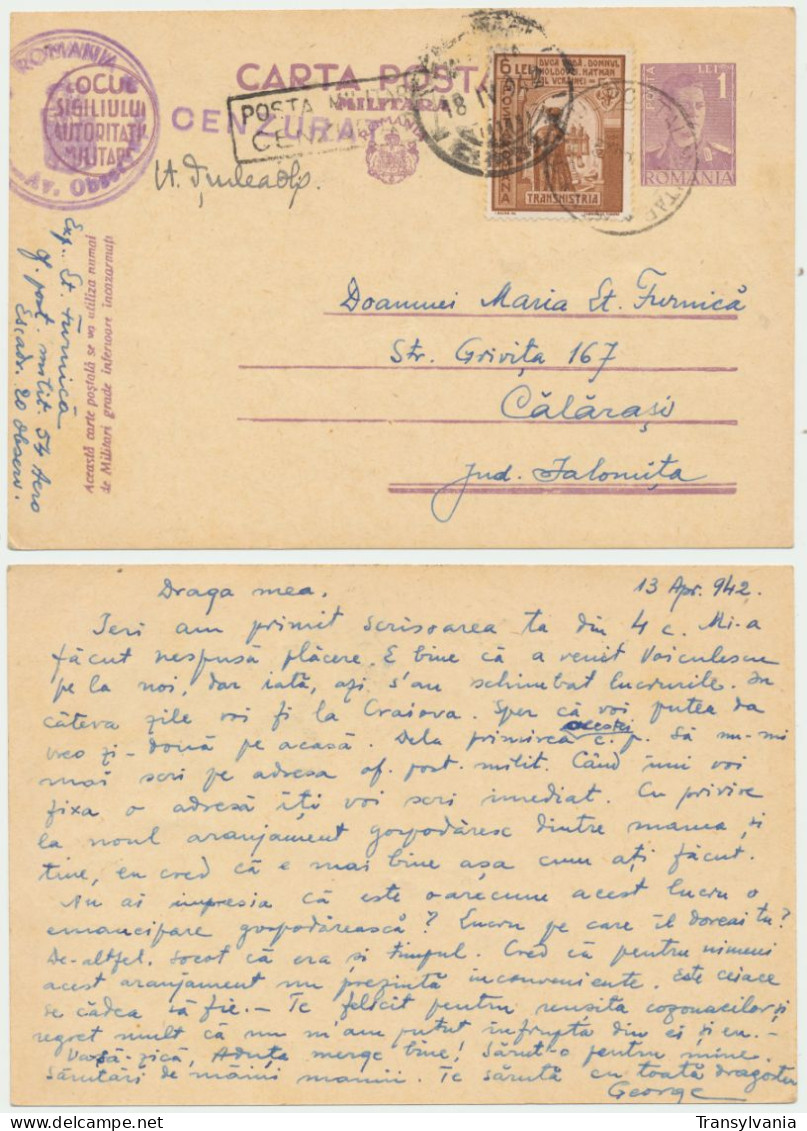 ROMANIA
LOCUL
SIGILIULUI
AUTORITATII
MILITARE
Av. Obser
CARTA POSTA
MILITARA
CENZURA
POSTA MILITAR
CEN
ROMANIA
18 IV 942
6 LEI
DUCA VODA, DOMNUL
MOLDOVEI, HATMAN
AL UCRAINEI
POSTA
ROMANA
TRANSNISTRIA
LEI 1
ROMANIA
Exp. St. Furnică
of. post. milit. 54 Aero
Escadr. 20 Observ.
Această carte poștală se va utiliza numai
de Militari grade inferioare incazarmați
Doamnei Maria St. Furnică
Str. Grivița 167
Călărași
Jud. Ialomița
Draga mea, 13 Apr. 942.
Ieri am primit scrisoarea ta din 4 c. Mi-a
făcut nespusă plăcere. E bine că a venit Voiculescu
pe la noi, dar iată, azi s'au schimbat lucrurile. In
câteva zile voi fi la Craiova. Sper că voi putea da
vreo zi-două pe acasă. Dela primirea acestei c. p. să nu-mi
mai scri pe adresa of. post. milit. Când îmi voi
fixa o adresă îți voi scri imediat. Cu privire
la noul aranjament gospodăresc dintre mama și
tine, eu cred că e mai bine așa cum ați făcut.
Nu ai impresia că este oarecum acest lucru o
emancipare gospodărească? Lucru pe care îl doreai tu?
De-altfel, socot că era și timpul. Cred că pentru nimeni
acest aranjament nu prezintă inconveniente. Este ceiace
se cădea să fie. - Te felicit pentru reușita cozonacilor și
regret mult că nu m'am putut înfrupta din ei și eu. -
Va să-zică, Aduța merge bine! Sărut-o pentru mine.
Sărutări de mâini mamii. Te sărută cu toată dragostea
George
Transylvania